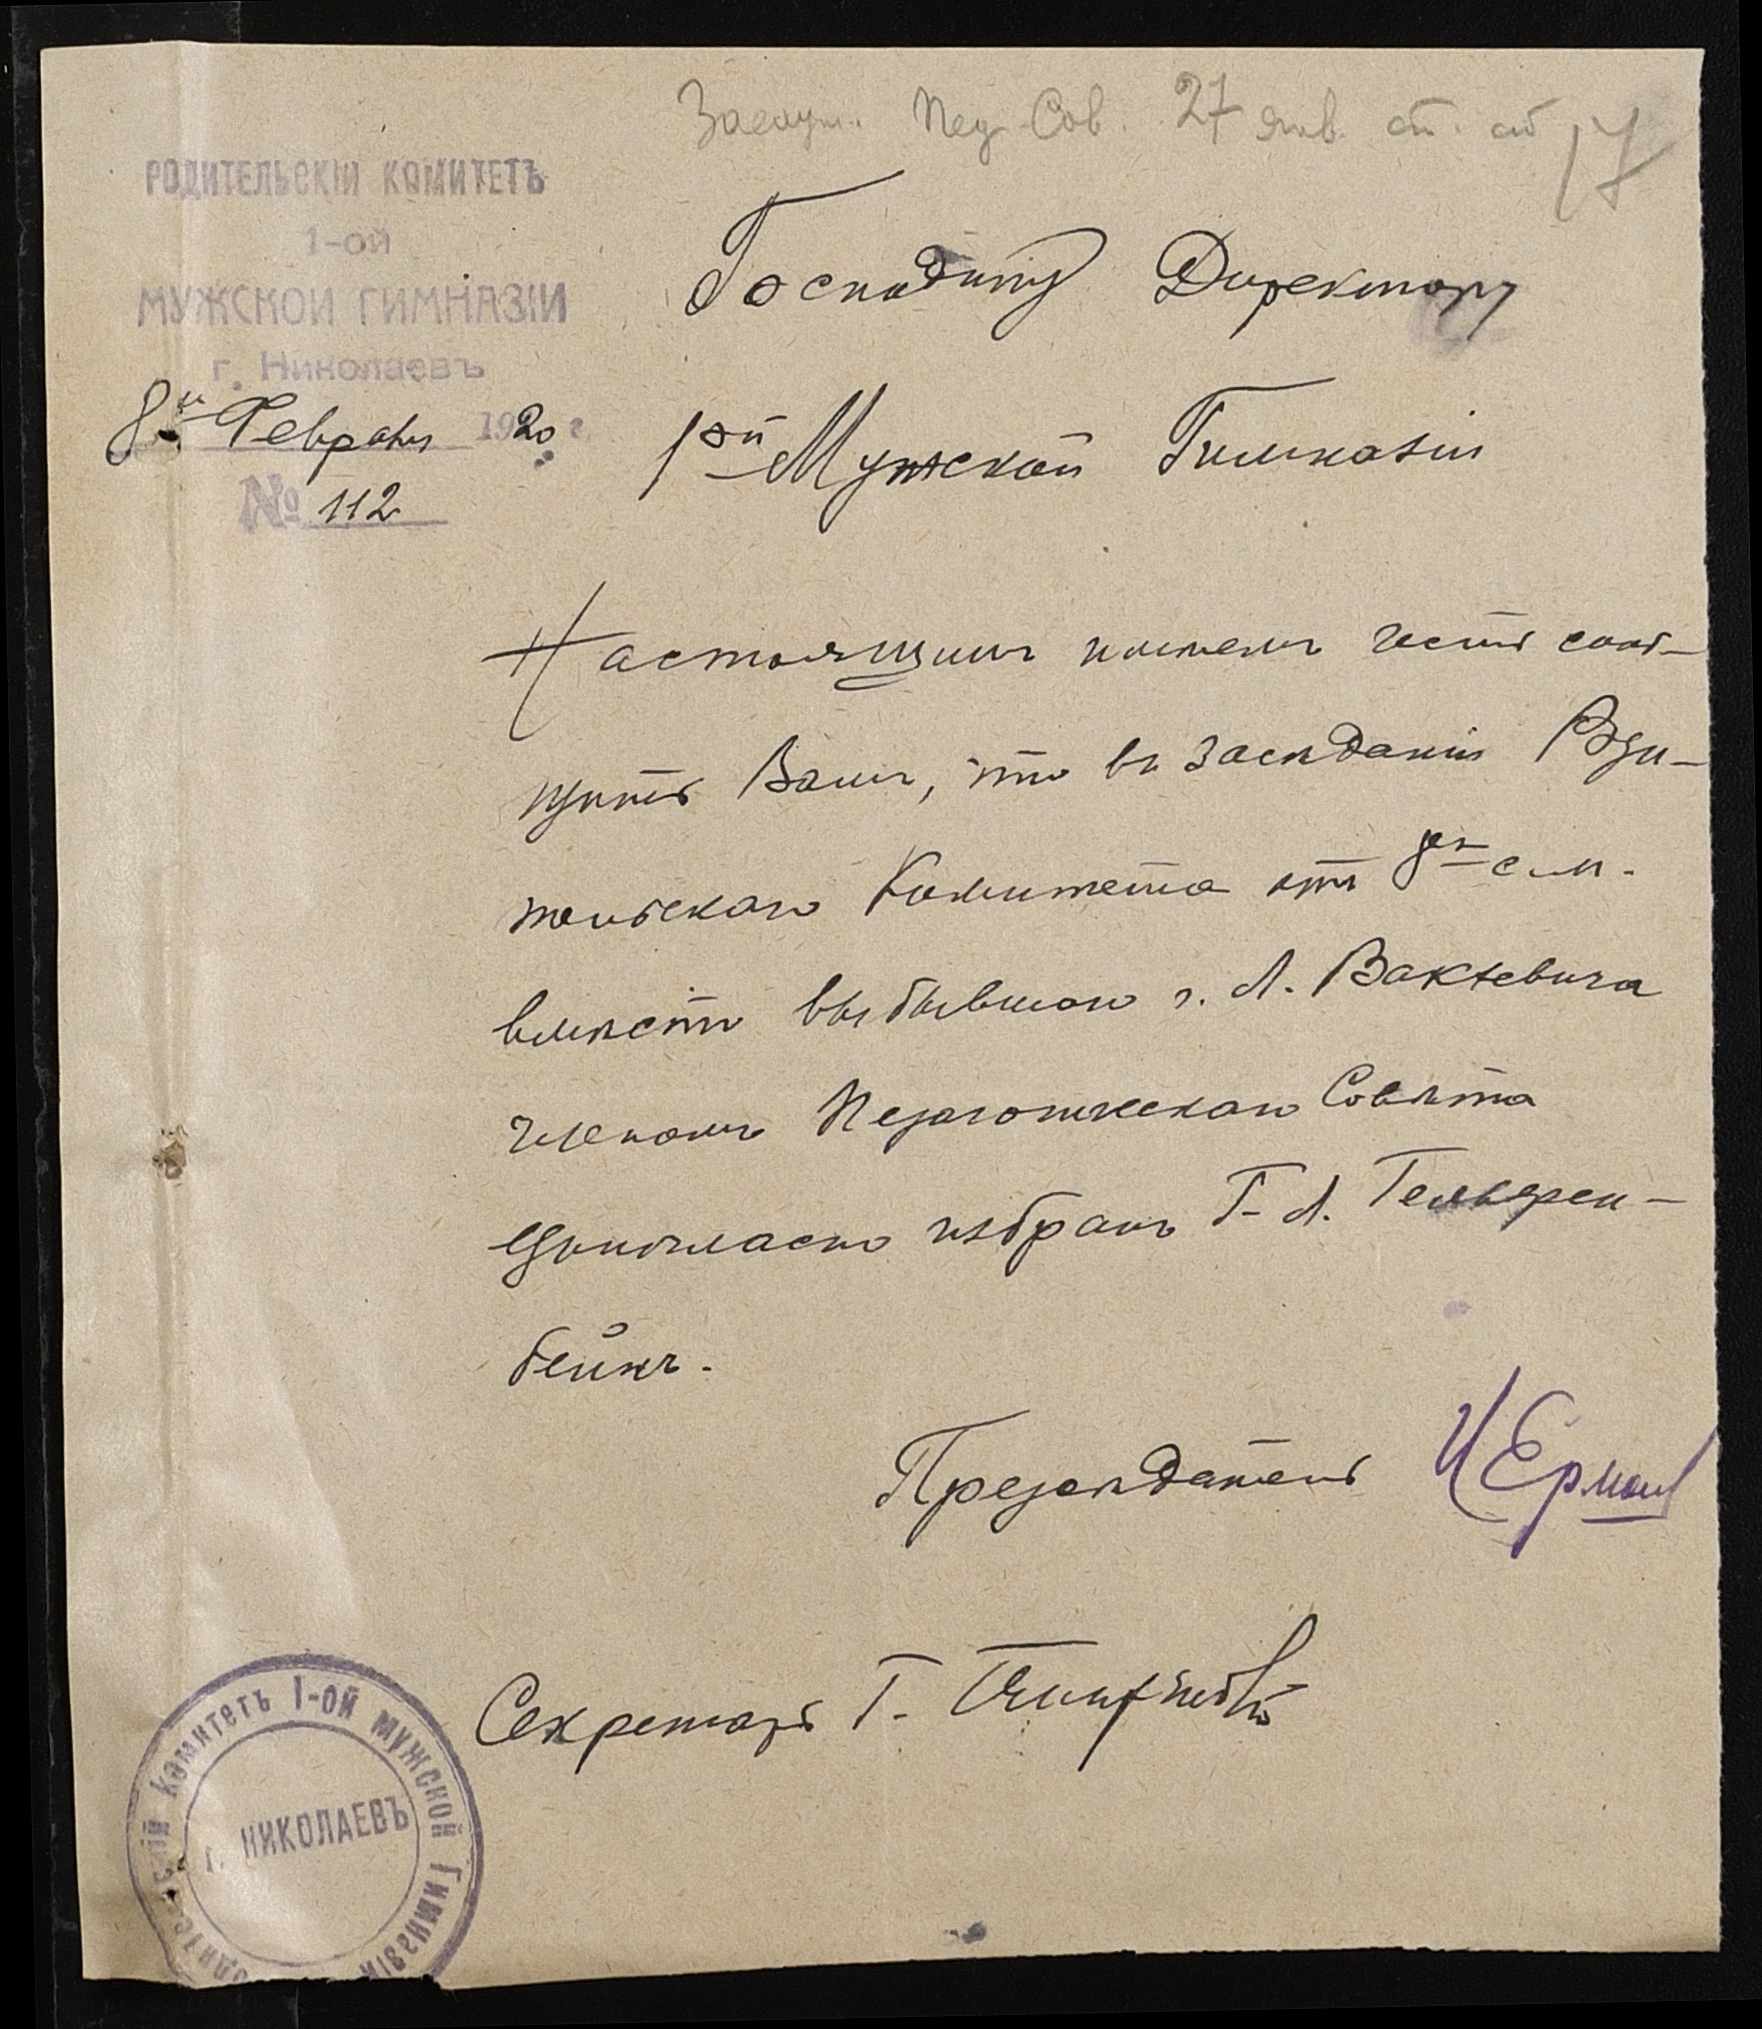 Заслуш. Пед. Сов. 27 янв. ст. ст.
17
РОДИТЕЛЬСКІЙ КОМИТЕТЪ
1-ой
МУЖСКОЙ ГИМНАЗІИ
г. Николаевъ
8го Февраля 1920 г.
№ 112
Господину Директору
1ой Мужской Гимназіи
Настоящимъ имѣемъ честь сооб-
щить Вамъ, что въ засѣданіи Роди-
тельскаго Комитета отъ 8го с.м.
вмѣсто выбывшаго г. Л. Вактевича
членомъ Педагогическаго Совѣта
единогласно избранъ Г. Л. Гельфен-
бейнъ.
Предсѣдатель
Секретарь Г.
Родительскій Комитетъ 1-ой Мужской Гимназіи
г. НИКОЛАЕВЪ